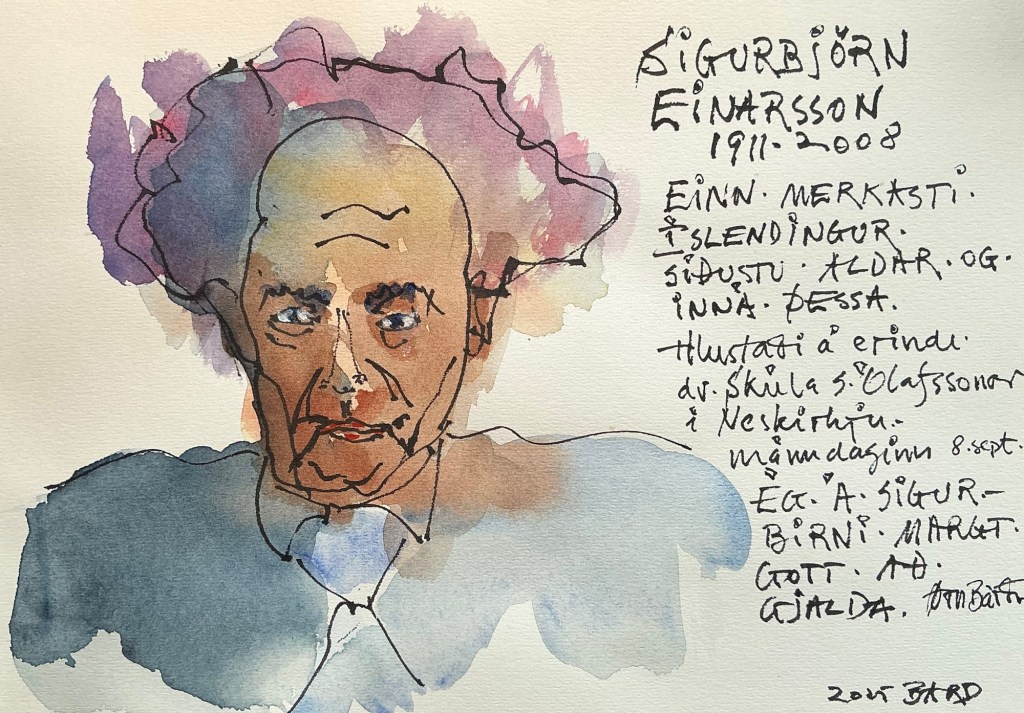 SIGURBJÖRN
EINARSSON
1911-2008
EINN. MERKASTI.
ÍSLENDINGUR.
SÍÐUSTU. ALDAR. OG.
INNÁ. ÞESSA.
Hlustaði á erindi
dr. Skúla S. Ólafssonar
í Neskirkju.-
mánudaginn 8. sept.
ÉG. Á. SIGUR-
BIRNI. MARGT.
GOTT. AÐ.
GJALDA. Örn Bárður
2025 BARD